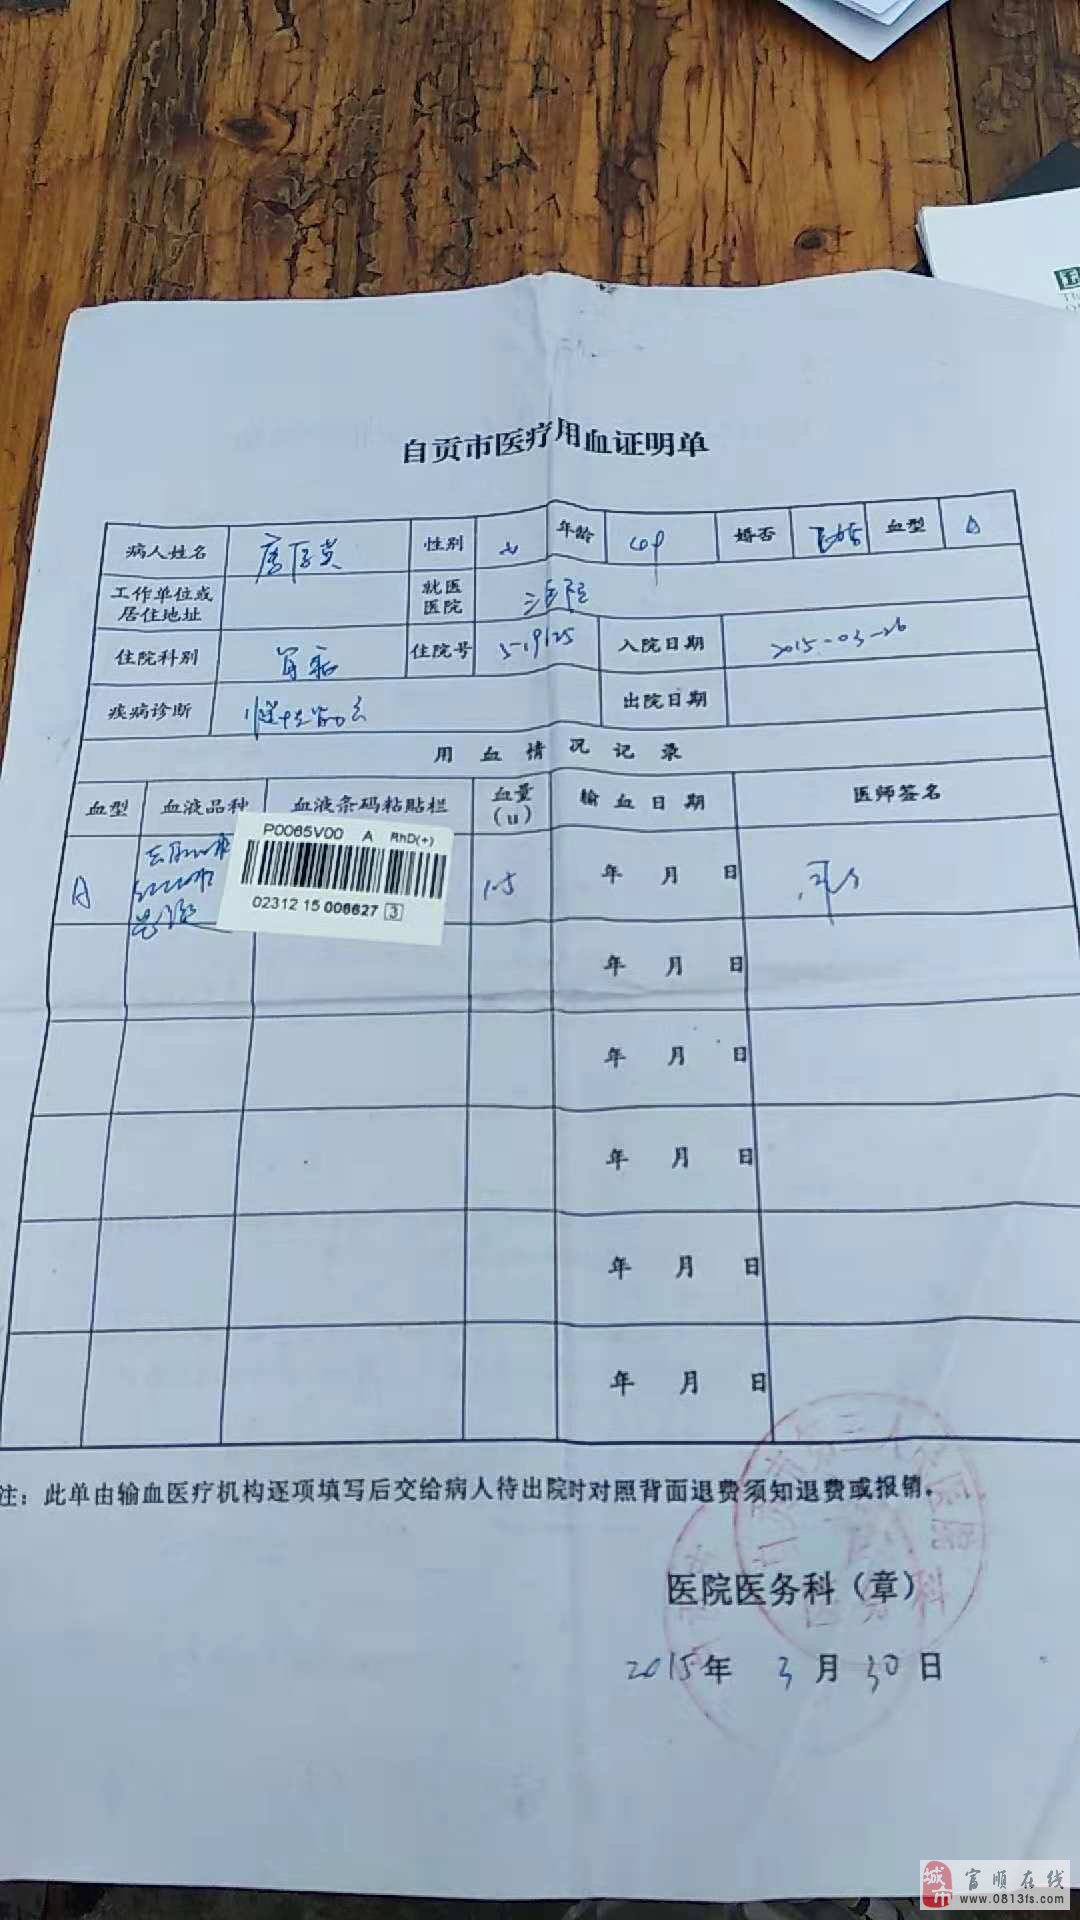 自贡市医疗用血证明单
病人姓名 性别 女 年龄 婚否 血型 A
工作单位或居住地址 就医医院 三医院
住院科别 肾病 住院号 入院日期 2015-03-26
疾病诊断 出院日期
用血情况记录
血型 血液品种 血液条码粘贴栏 血量(u) 输血日期 医师签名
P0065V00 A RhD(+)
A 1.5 年 月 日
02312 15 006627 3
年 月 日
年 月 日
年 月 日
年 月 日
年 月 日
注：此单由输血医疗机构逐项填写后交给病人待出院时对照背面退费须知退费或报销。
医院医务科（章）
2015年 3月30日
城市 富顺在线
www.0813fs.com